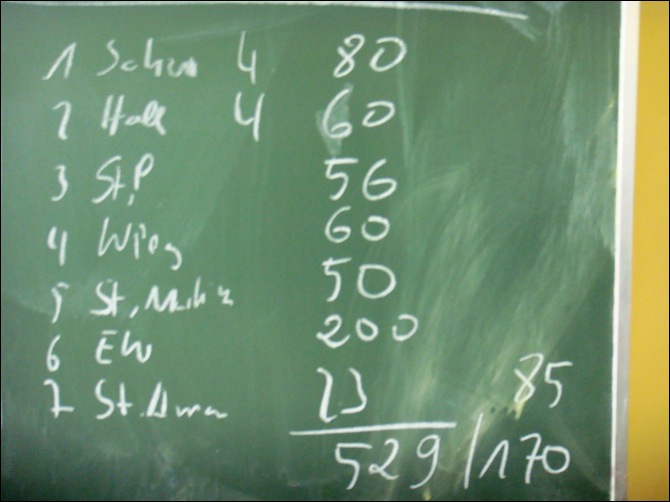 1 4 80
2 Hall 4 60
3 St,P 56
4 60
5 St, 50
6 EW 200
7 St. Anna 23 85
529/170